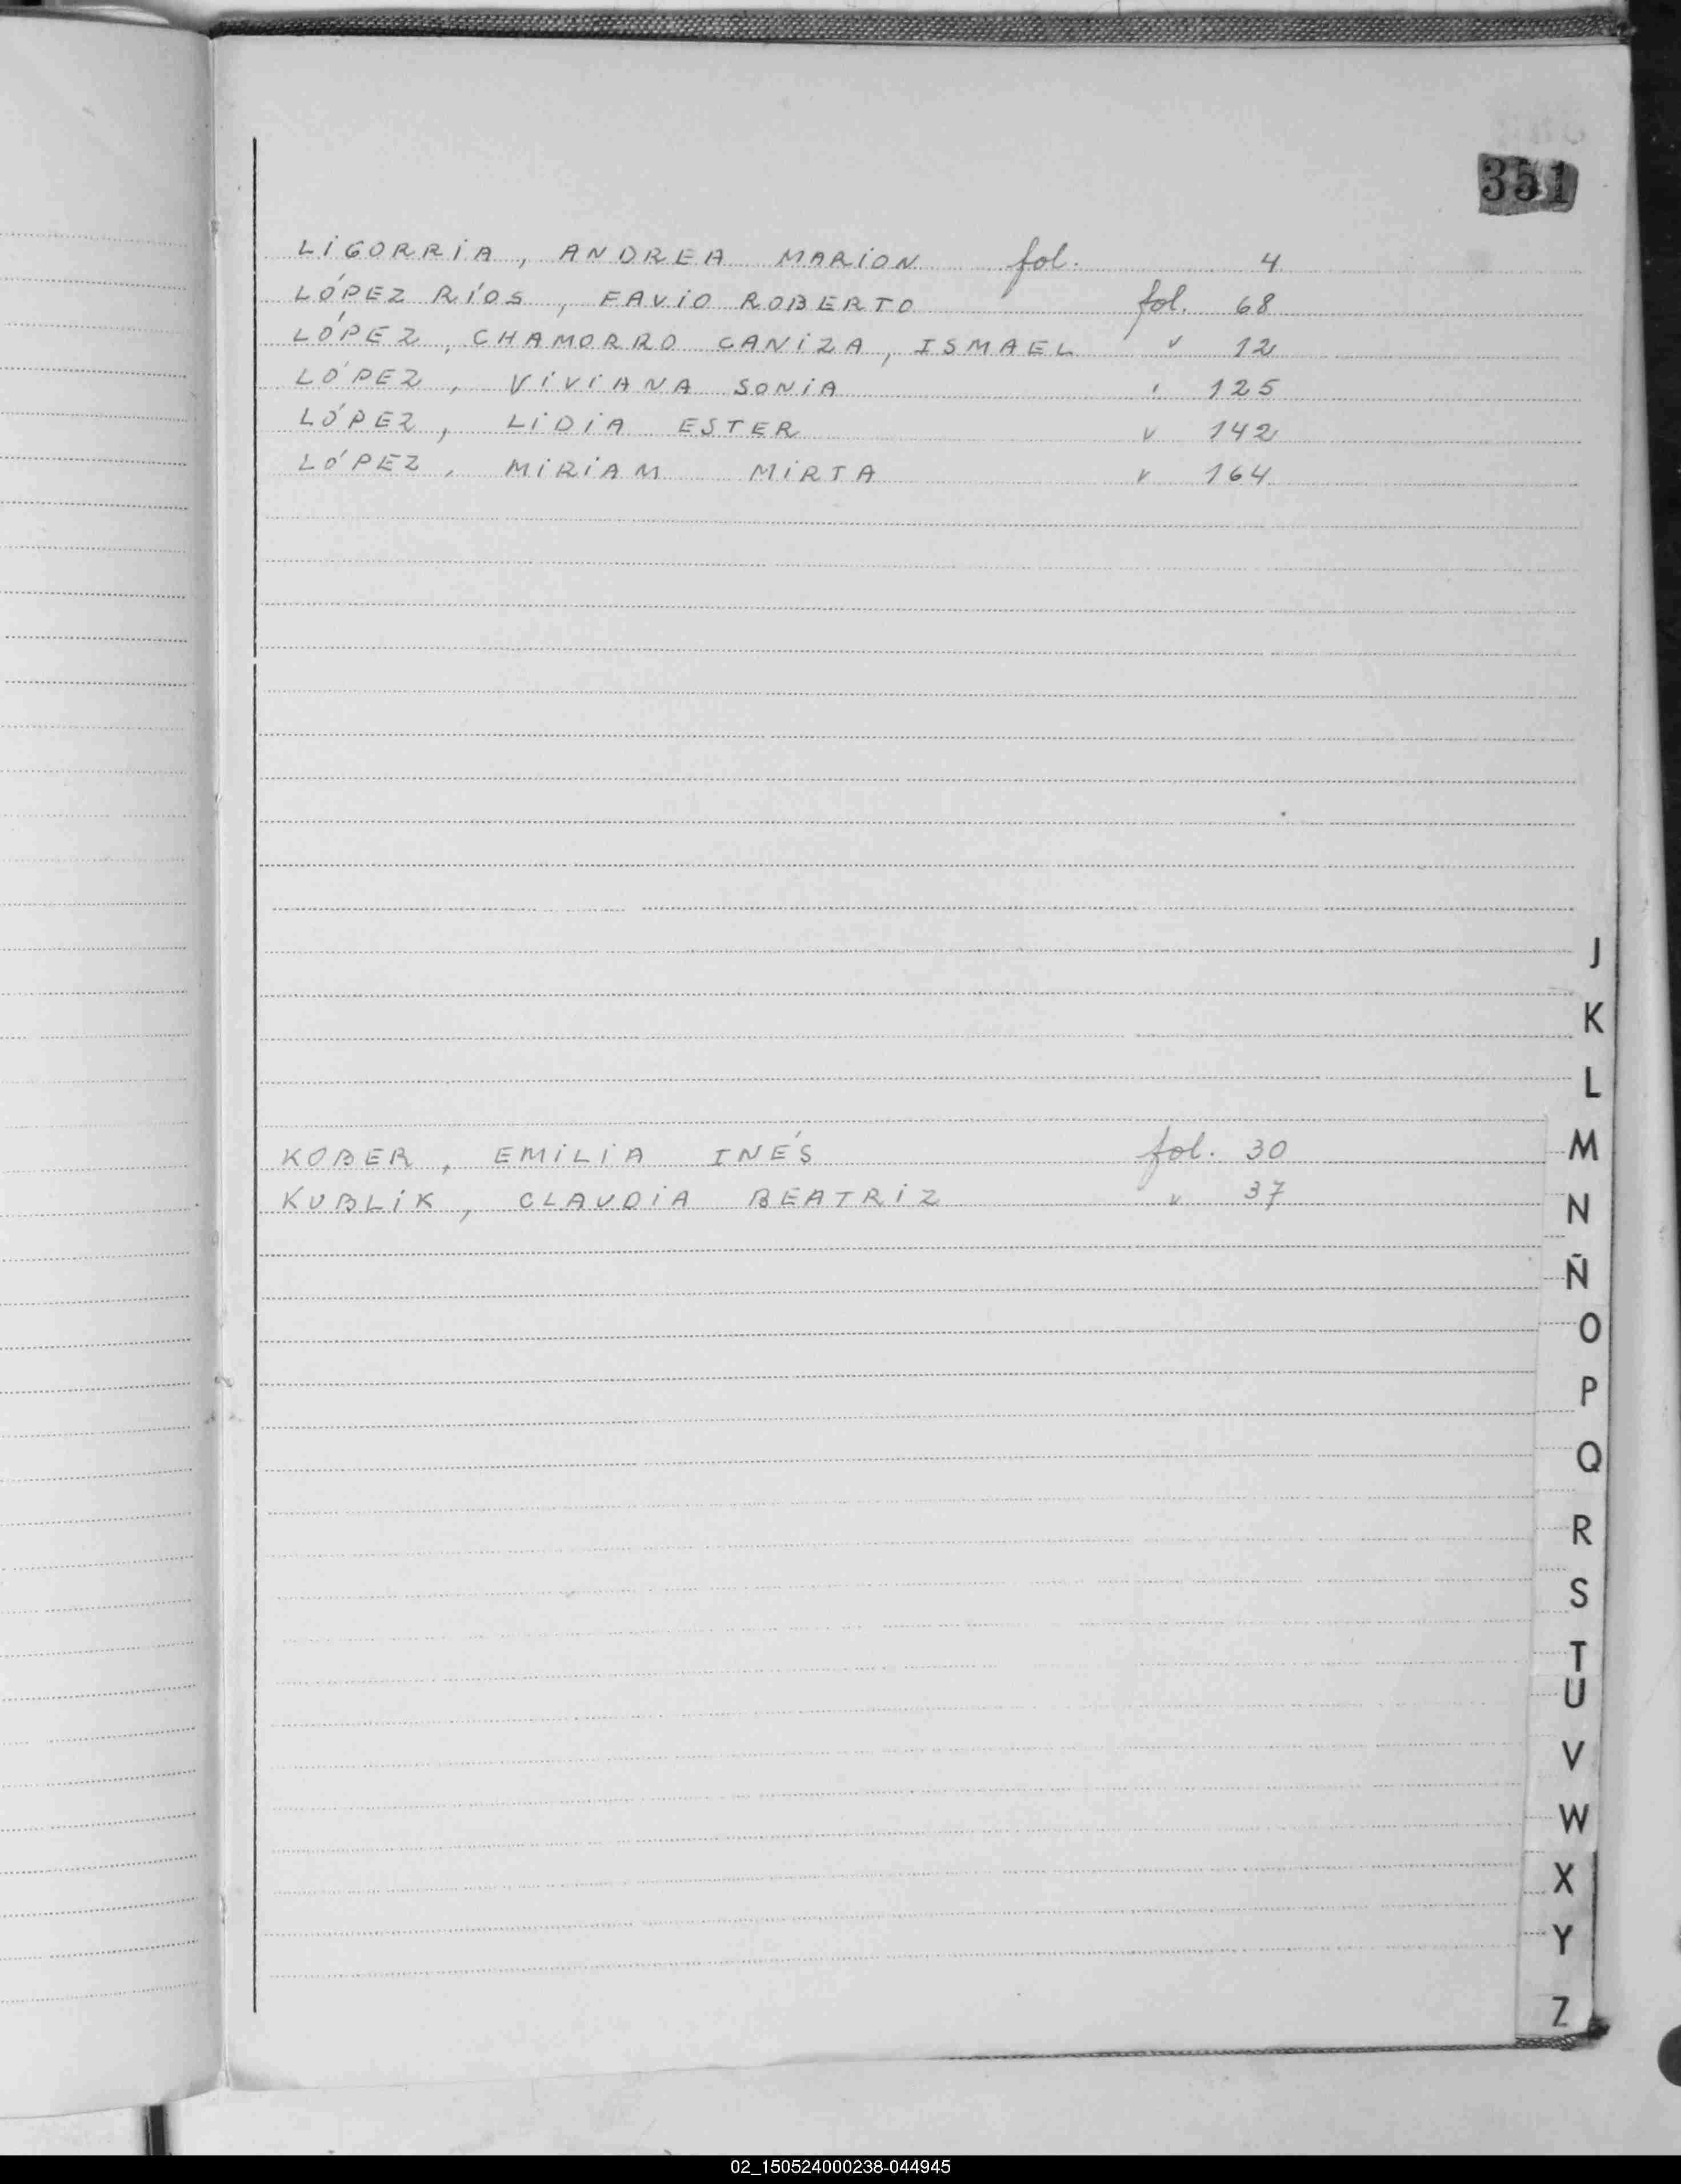 351
LIGORRIA, ANDREA MARION fol. 4
LÓPEZ RÍOS, FAVIO ROBERTO fol. 68
LÓPEZ, CHAMORRO CANIZA, ISMAEL " 12
LÓPEZ, VIVIANA SONIA " 125
LÓPEZ, LIDIA ESTER " 142
LÓPEZ, MIRIAM MIRTA " 164
J
K
L
KOBER, EMILIA INÉS fol. 30
M
KUBLIK, CLAUDIA BEATRIZ " 37
N
Ñ
O
P
Q
R
S
T
U
V
W
X
Y
Z
02_150524000238-044945